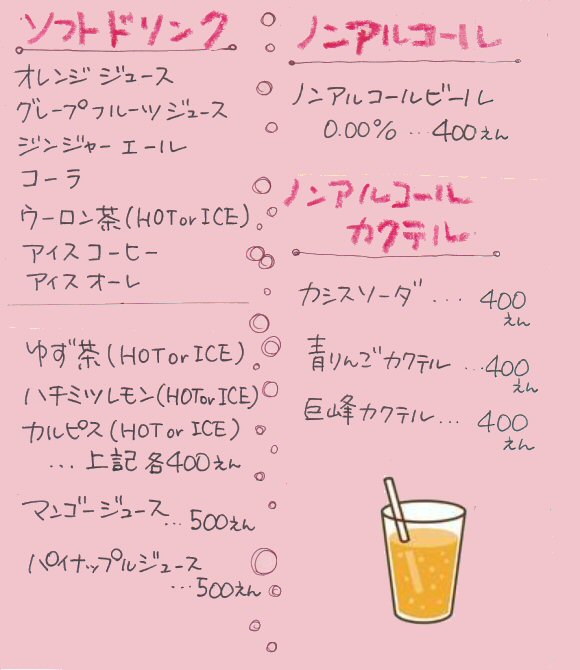 ソフトドリンク
オレンジ ジュース
グレープフルーツ ジュース
ジンジャー エール
コーラ
ウーロン茶(HOT or ICE)
アイスコーヒー
アイスオーレ
ゆず茶(HOT or ICE)
ハチミツレモン(HOT or ICE)
カルピス(HOT or ICE)
... 上記 各400えん
マンゴージュース
... 500えん
パイナップルジュース
... 500えん
ノンアルコール
ノンアルコールビール
0.00% ... 400えん
ノンアルコール
カクテル
カシスソーダ ... 400
えん
青りんごカクテル ... 400
えん
巨峰カクテル ... 400
えん